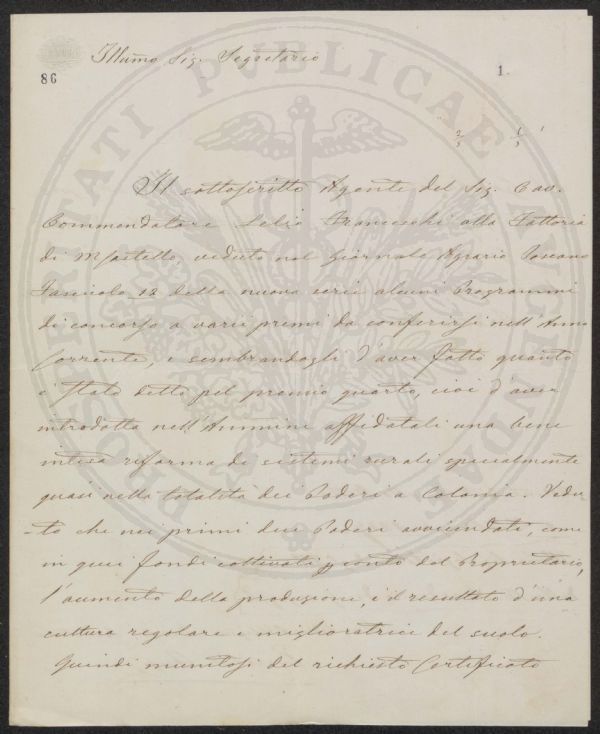 Illumo Sig. Segretario
86
1.
PROSPERITATI PUBLICAE AUGENDAE
Il sottoscritto Agente del Sig. Cav.
Commendatore Lelio Franceschi alla Fattoria
di veduto nel Giornale Agrario Toscano
Fascicolo 12 della nuova serie alcuni Programmi
di concorso a varii premi da conferirsi nell'Anno
Corrente, e sembrandogli d'aver fatto quanto
è stato detto pel premio quarto, cioè d'aver
introdotta nell' affidatali una bene
intesa riforma di sistemi rurali specialmente
quasi nella totalità dei Poderi a Colonia. Vedu-
-to che nei primi due Poderi avvicendati, come
in quei fondi coltivati p conto del Proprietario,
l'aumento della produzione, è il resultato d'una
cultura regolare e miglioratrice del suolo.
Quindi munitosi del richiesto Certificato